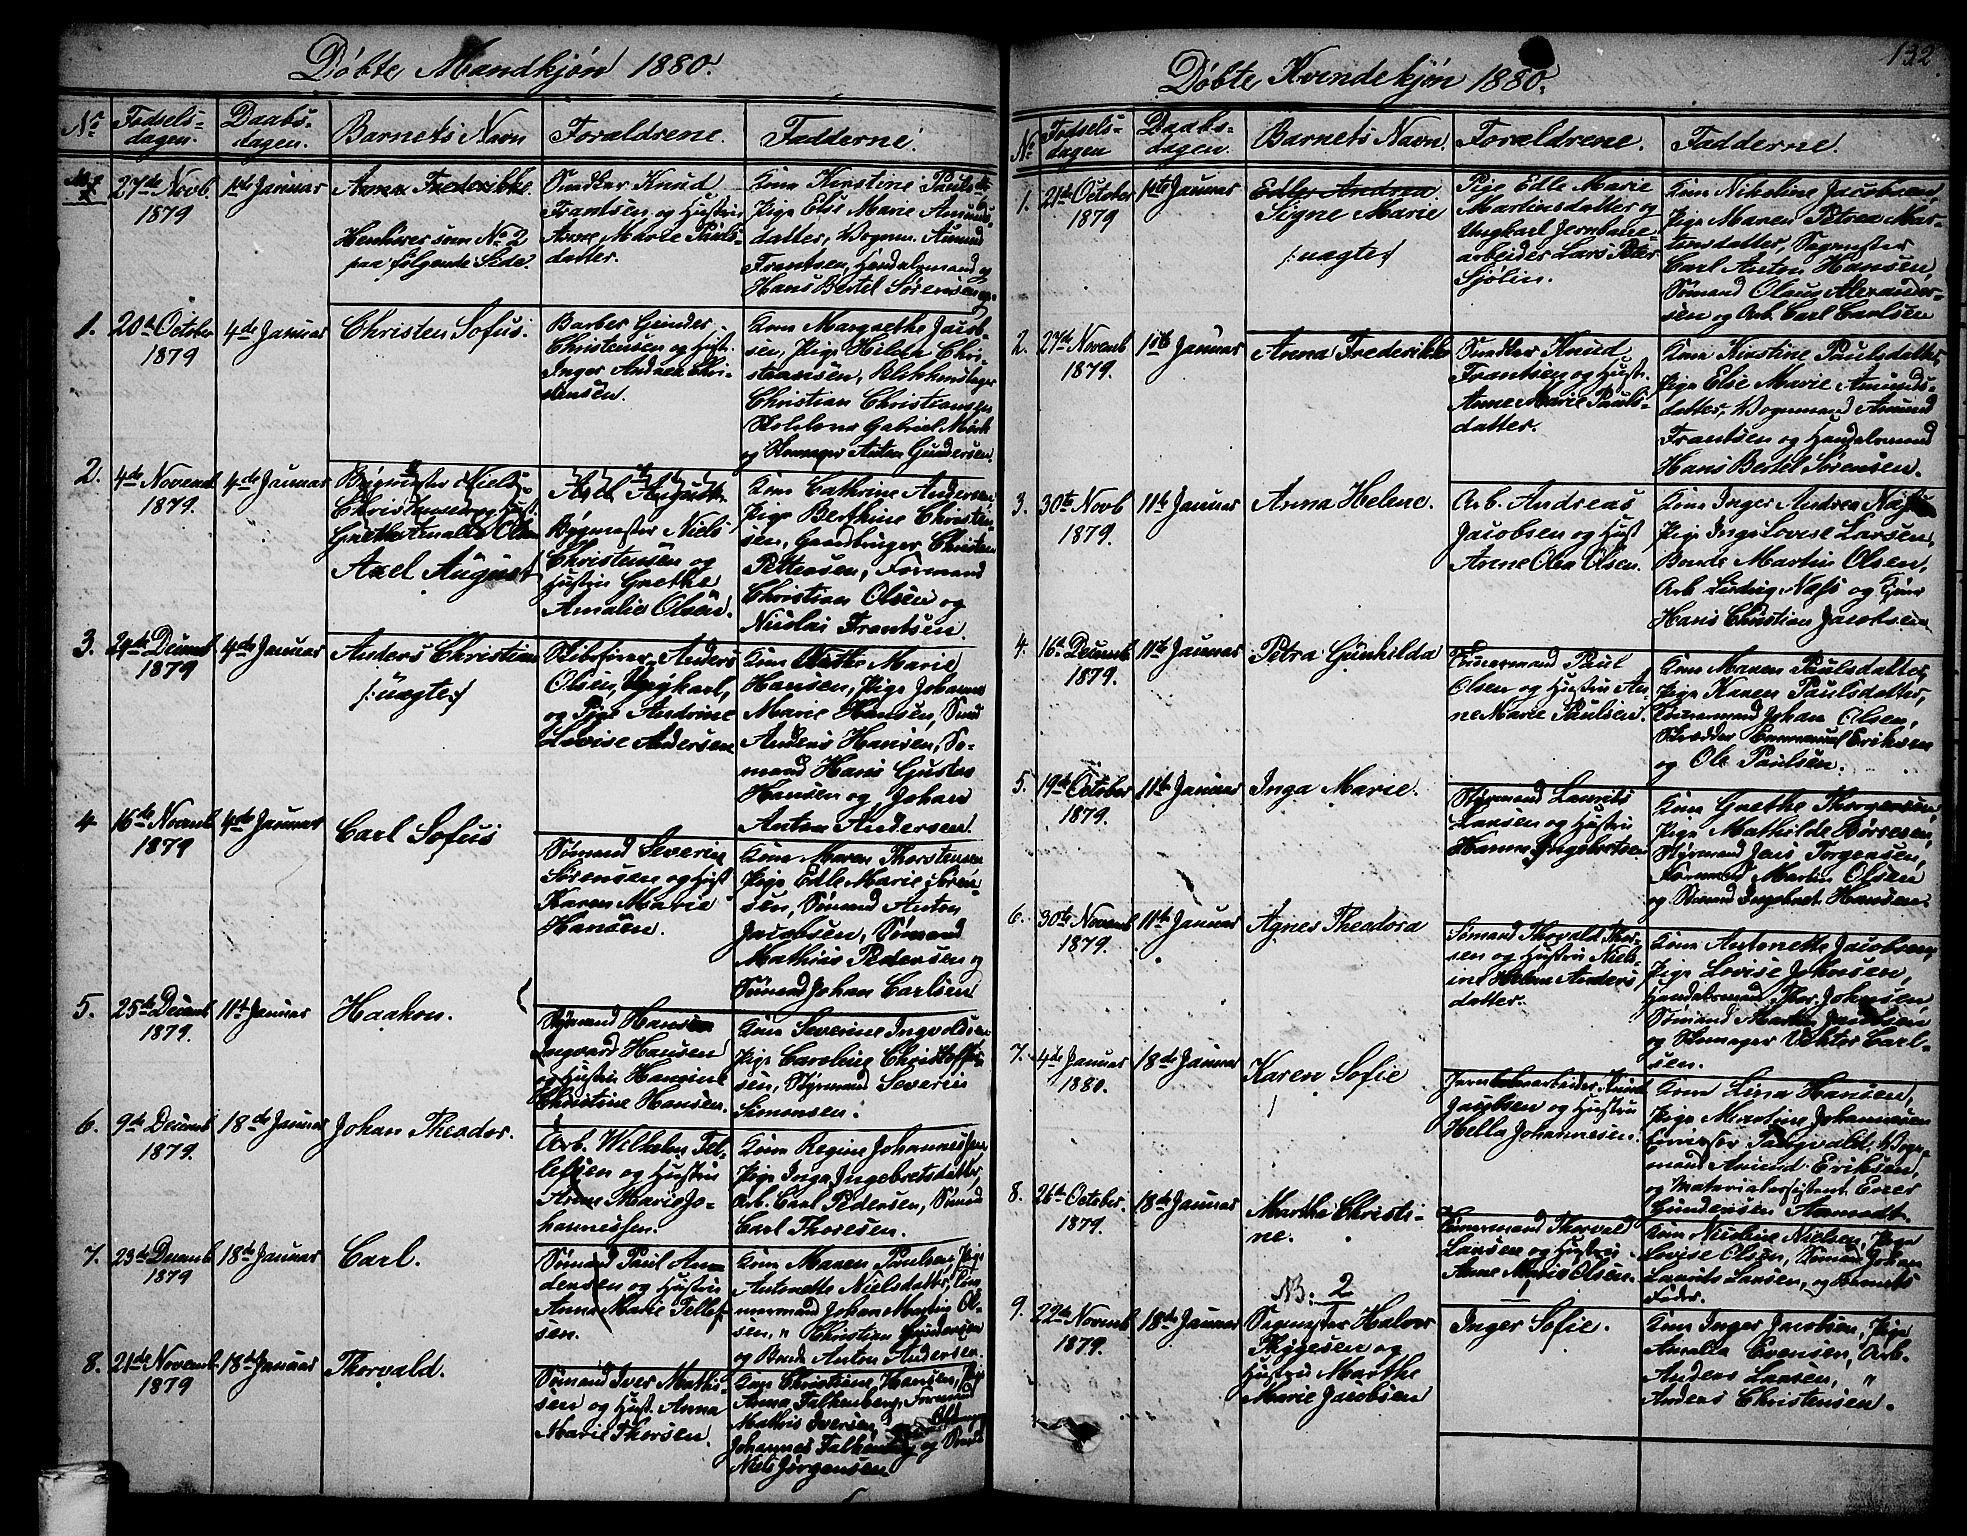 Döbte Mandkjøn 1880.
No Fødsels-dagen. Daabs-dagen. Barnets Navn Forældrene. Fadderne.
27de Novb 1879 1ste Januar
Anna Frederikke.
Henhører som No 2
paa følgende Side.
Snedker Knud
Frantsen og Hustru
Anne Marie Pauls-
datter.
Kone Kirstine Paulsdtr
Pige Else Marie Amunds-
datter, Vognm. Amund
Frantsen, Handelsmand og
Hans Bertel Sørensen
1. 20de October 1879 4de Januar
Christen Sofus.
Barber Gunder
Christensen og Hust.
Inger Andrea Chri-
stensen.
Kone Margrethe Jacob-
sen, Pige Hilda Chri-
stiansen, Blikkenslager
Christian Christiansen
Gabriel Mørk
og Skomager Anton Gundersen.
2. 4de Novemb 1879. 4de Januar
Bygmester Niels
Christensen og Hust.
Grethe Amalie Olsen
Axel August
Axel August
Bygmester Niels
Christensen og
Hustru Grethe
Amalie Olsen.
Kone Cathrine Andersen
Pige Berthine Christen-
sen, Gaardbruger Christen
Pettersen, Formand
Christian Olsen og
Nicolai Frantsen.
3. 24de Decemb 1879 4de Januar
Anders Christian
/: uagte :/
Skibsfører Anders
Olsen, Ungkarl,
og Pige Andrine
Lovise Andersen
Kone Marie
Hansen, Pige Johanne
Marie Hansen, Smed
Anders Hansen, Sø-
mand Hans Gustav
Hansen og Johan
Anton Andersen.
4 16de Novemb 1879 4de Januar
Carl Sofus
Sømand Severin
Sørensen og Hust
Karen Marie
Hansen.
Kone Maren Thorstensen
Pige Edle Marie Søren-
sen, Sømand Anton
Jacobsen, Sømand
Mathias Pedersen og
Sømand Johan Carlsen
5. 25de Decemb 1879. 11te Januar
Haakon.
Styrmand Hans
Ingvard Hansen
og Hustru Hansine
Christine Hansen.
Kone Severine Ingvoldsen
Pige Caroline Christoffer-
sen, Styrmand Severin
Simonsen.
6. 9de Decemb 1879. 18de Januar
Johan Theodor.
Arb. Wilhelm Tel-
lefsen og Hustru
Anne Marie Jo-
hannessen.
Kone Regine Johannessen,
Pige Inga Ingebretsdatter,
Arb. Carl Pedersen, Sømand
Carl Thoresen.
7. 23de Decemb 1879 18de Januar
Carl.
Sømand Paul An-
dersen og Hustru
Anna Marie Tellef-
sen.
Kone Maren Poulsen, Pige
Antonette Nielsdatter, Tøm-
mermand Johan Martin Ol-
sen, " Christian Gundersen
og Bonde Anton Andersen.
8. 21de Novemb. 1879 18de Januar
Thorvald.
Sømand Iver Mathi-
sen og Hust. Anna
Marie Thorsen.
Kone Christiane Hansen, Pige
Anna Falkenberg, Formand
Mathis Iversen,
Johannes Falkenberg og
Niels Jørgensen
132
Döbte Kvindekjøn 1880.
No Fødsels-dagen Daabs-dagen. Barnets Navn. Forældrene. Fadderne.
1. 21de October 1879 1ste Januar
Edle Andrea
Signe Marie
/: uagte :/
Pige Edle Marie
Martinsdatter og
Ungkarl Jernbane-
arbeider Lars Peter
Sjölin.
Kone Nikoline Jacobsen,
Pige Maren Petrea Mar-
tinsdatter, Sagmester
Carl Anton Hansen,
Sømand Olaus Alexander-
sen og Arb. Carl Carlsen
2. 27de Novemb 1879. 1ste Januar
Anna Frederikke
Snedker Knud
Frantsen og Hustr.
Anne Marie Pauls-
datter.
Kone Kirstine Paulsdatter,
Pige Else Marie Amunds-
datter, Vognmand Amund
Frantsen og Handelsmand
Hans Bertel Sørensen.
3. 30te Novb 1879. 11te Januar
Anna Helene.
Arb. Andreas
Jacobsen og Hust
Anne Olea Olsen.
Kone Inger Andrea Næss
Pige Inga Lovise Larsen,
Bonde Martin Olsen,
Arb Ludvig Næss og
Hans Christian Jacobsen
4. 16de Decemb 1879. 11te Januar
Petra Gunhilda
Tømmermand Paul
Olsen og Hustru An-
ne Marie Paulsen.
Kone Maren Paulsdatter,
Pige Karen Paulsdatter,
Tømmermand Johan Olsen,
Skrædder Emmanuel Eriksen
og Ole Paulsen.
5. 19de October 1879. 11te Januar
Inga Marie.
Styrmand Laurits
Larsen og Hustru
Hanna Ingebretsen
Kone Grethe Thorgersen,
Pige Mathilde Børresen,
Styrmand Jens Torgersen,
Formand Martin Olsen
og Sømand Ingebret Hansen.
6. 30te Novemb 1879. 11te Januar
Agnes Theodora
Sømand Thorvald Thor-
sen og Hustru Niels-
ine Helene Anders-
datter.
Kone Antonette Jacobsen,
Pige Lovise Johnsen,
Handelsmand Thor Johnsen
Sømand Martin Jacobsen
og Skomager Viktor Carl-
sen.
7. 4de Januar 1880. 18de Januar
Karen Sofie
Jernbanearbeider Knud
Jacobsen og Hustru
Hella Johannesen.
Kone Lina Hansen,
Pige Martine Johannesen
Vogn-
mand Amund Eriksen,
og Materialassistent Ener
Gundersen Aamodt.
8. 26de October. 1879. 18de Januar
Marthe Christi-
ne.
Tømmermand Thorvald
Larsen og Hustru
Anne Marie Olsen.
Kone Nicoline Nielsen, Pige
Lovise Olsen, Sømand Johan
Laurits Larsen, og Barnets
Fader.
9. 22de Novemb 1879. 18de Januar
NB: 2
Sagmester Halvor
Thygesen og
Hustru Marthe
Marie Jacobsen
Inger Sofie.
Kone Inger Jacobsen, Pige
Amalia Evensen, Arb.
Anders Larsen, "
Anders Christensen.